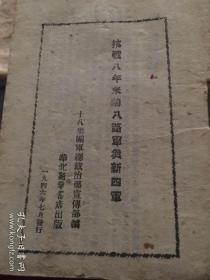 抗戰八年來的八路軍與新四軍
十八集團軍總政治部宣傳部編
華北新華書店出版
一九四六年七月發行